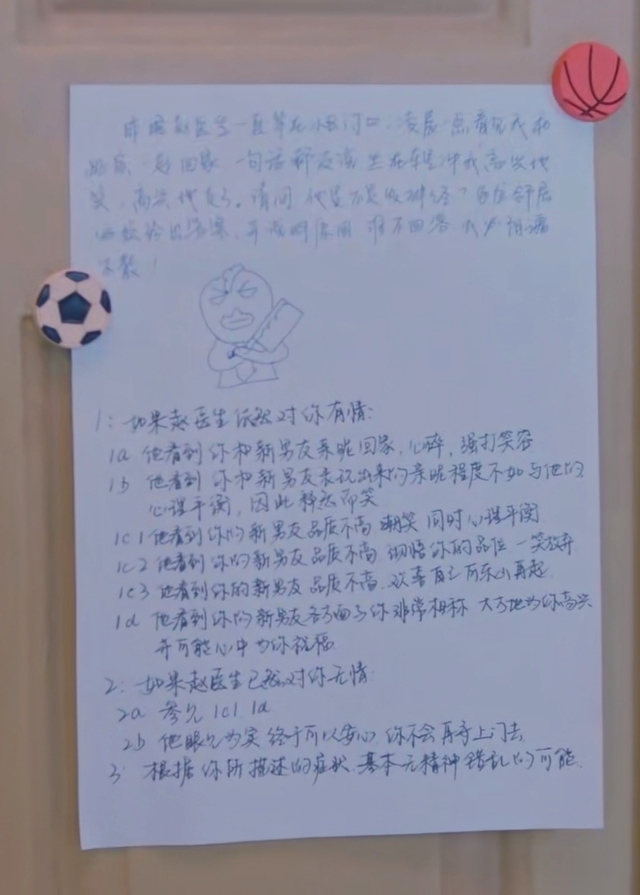 昨晚赵医生一直等在小区门口，凌晨一点看见我和
一起回家，一句话都没讲，坐在车里冲我高兴地
笑，高兴地走了。请问，他是不是发神经？各位邻居
给出答案，并说明原因，谁不回答我 阴魂
不散！
1：如果赵医生依然对你有情：
1a 他看到你和新男友亲昵回家，心碎，强打笑容
1b 他看到你和新男友表现出来的亲昵程度不如与他的
心理平衡，因此释然而笑
1c1 他看到你的新男友品质不高 嘲笑 同时心理平衡
1c2 他看到你的新男友品质不高 彻悟你的品位 一笑放弃
1c3 他看到你的新男友品质不高 欢喜自己可东山再起
1d 他看到你的新男友各方面与你非常相称 大方地为你高兴
并可能心中为你祝福
2：如果赵医生已然对你无情：
2a 参见 1c1 1d
2b 他眼见为实 终于可以安心 你不会再寻上门去
3：根据你所描述的症状 基本无精神错乱的可能